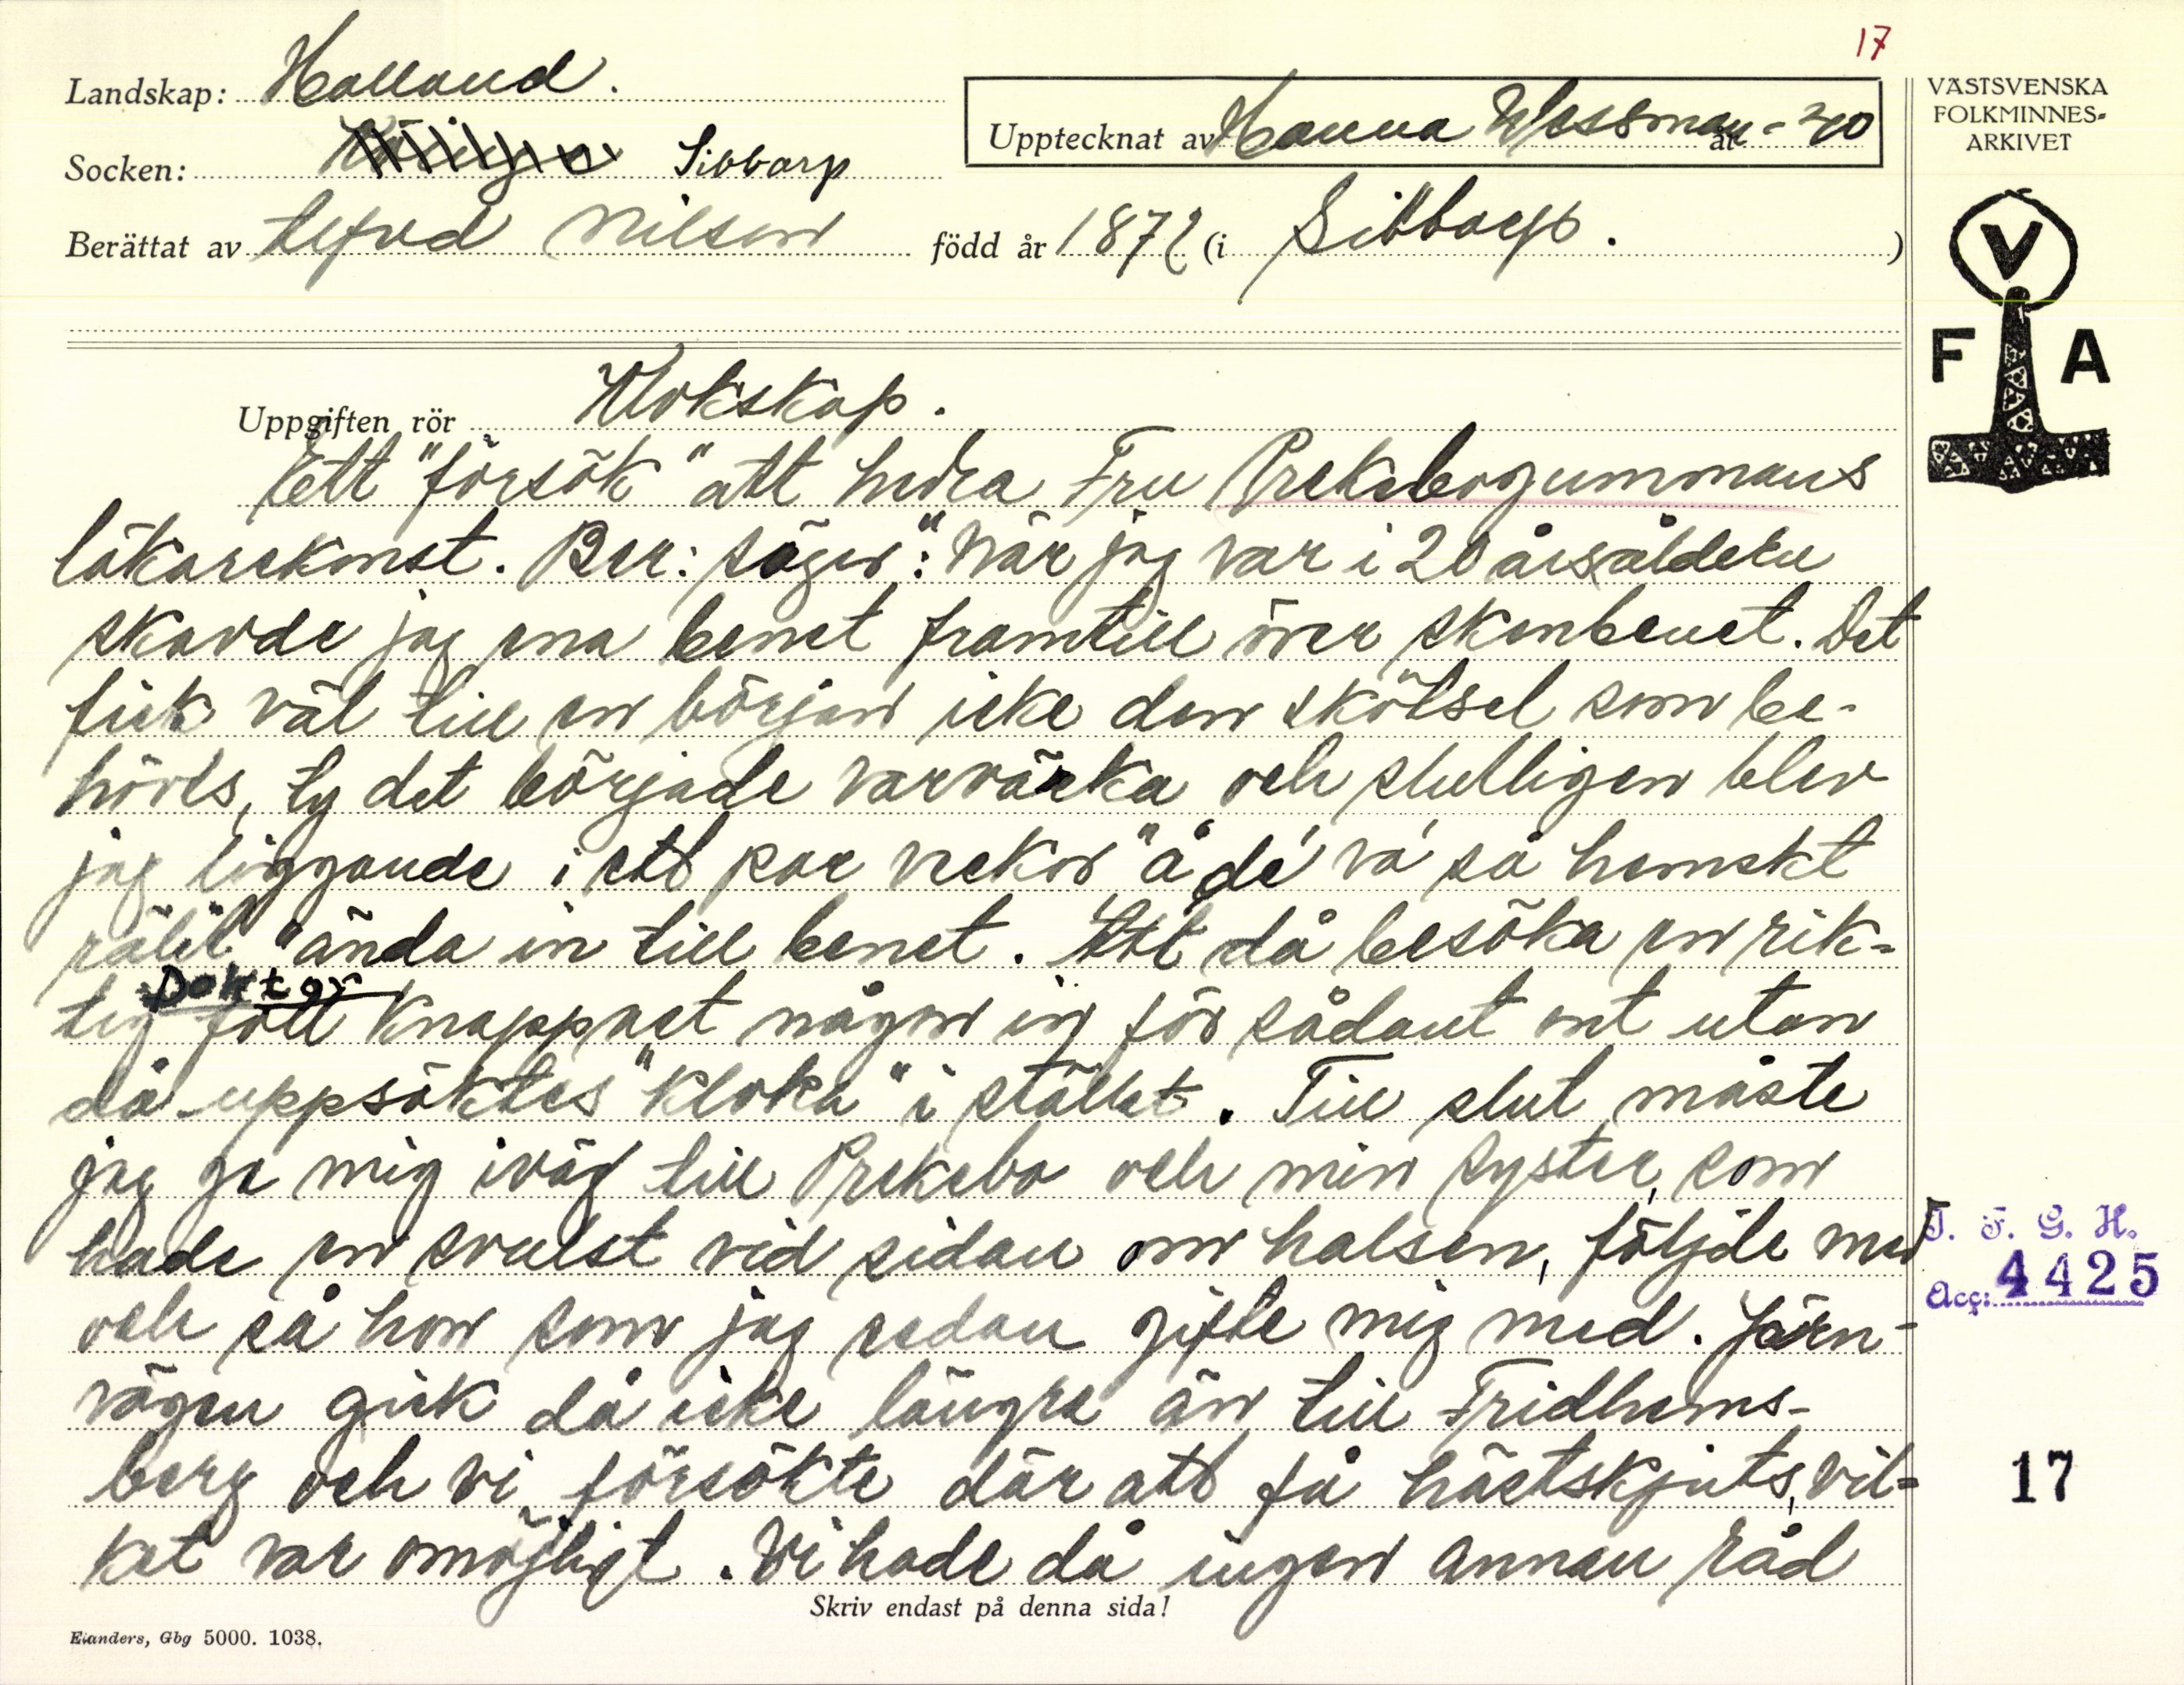 17
Landskap: Halland.
Upptecknat av Hanna Wessman år -40
VÄSTSVENSKA
FOLKMINNES-
ARKIVET
Socken: Sibbarp
Berättat av Alfred Nilson född år 1872 (i Sibbarp. )
V
F A
Uppgiften rör Klokskap.
Ett "försök" att hedra Fru Prekebogummans
läkarekonst. Ber: säger: "När jag var i 20 årsåldern
skavde jag ena benet framtill över skenbenet. Det
fick väl till en början icke den skötsel som be-
hövts, ty det började varvärka och slutligen blev
jag liggande i ett par veckor "å de' va' så hemskt
rälit" ända in till benet. Att då besöka en rik-
tig Doktor föll knappast någon in för sådant ont utan
då uppsöktes "kloka" i stället. Till slut måste
jag ge mig iväg till Prekebo och min syster, som
hade en svulst vid sidan om halsen, följde med
och så hon som jag sedan gifte mig med. Järn-
vägen gick då icke längre än till Fridhems-
berg och vi försökte där att få hästskjuts, vil-
ket var omöjligt. Vi hade då ingen annan råd
I. F. G. H.
Acc: 4425
17
Skriv endast på denna sida!
Elanders, Gbg 5000. 1038.